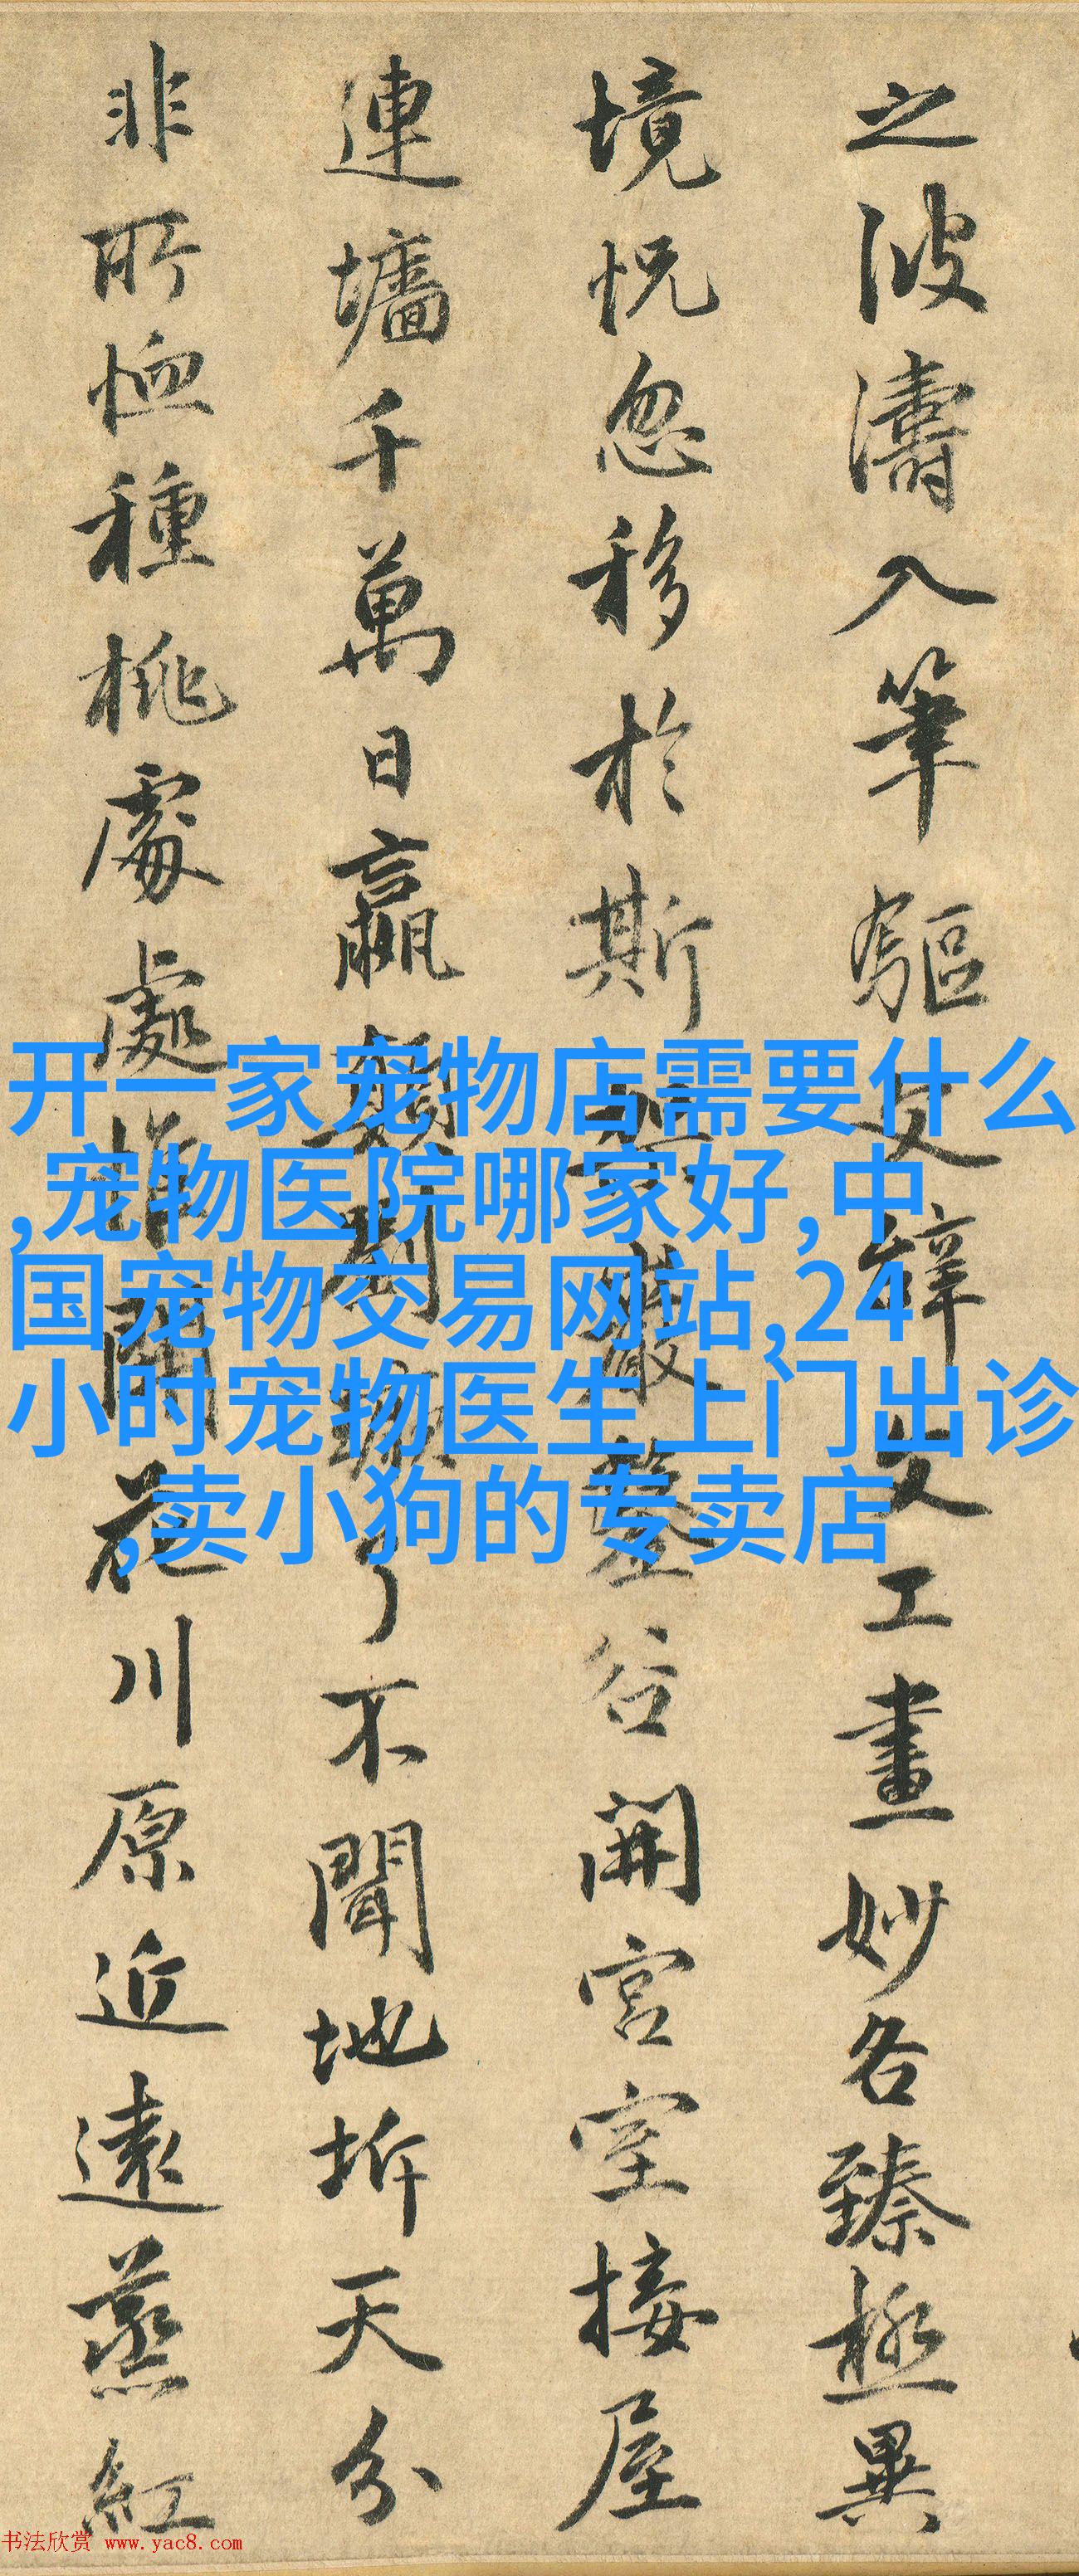 之波濤入筆驅文辭文工畫妙各臻極異
境怳忽移於斯巖壑谷開宮室接屋
連墻千萬日嬴顛劉蹶了不聞地坼天分
非所恤種桃處處惟開花川原近遠蒸紅
开一家宠物店需要什么
,宠物医院哪家好,中
国宠物交易网站,24
小时宠物医生上门出诊
,卖小狗的专卖店
书法欣赏 www.yac8.com